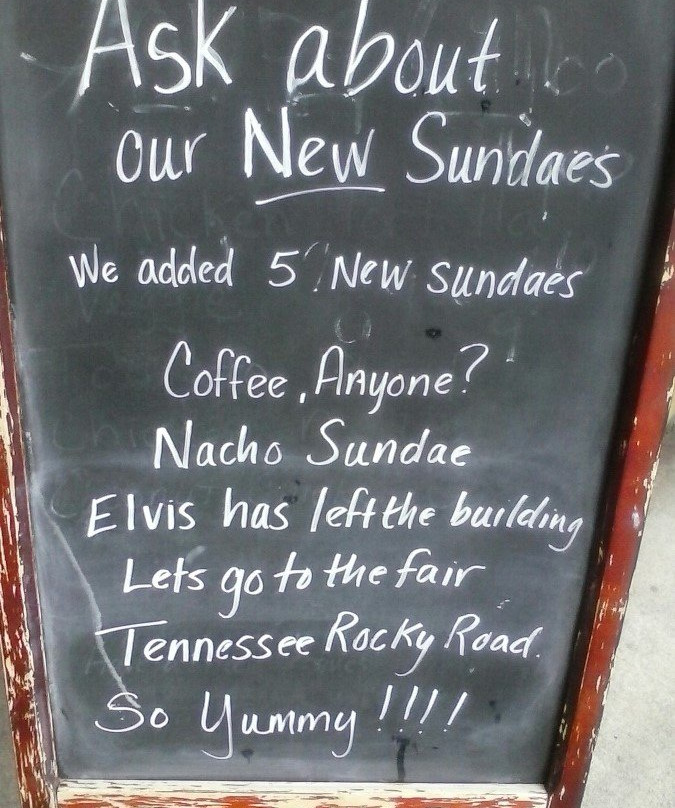 Ask about
our New Sundaes
We added 5 New sundaes
Coffee, Anyone?
Nacho Sundae
Elvis has left the building
Lets go to the fair
Tennessee Rocky Road.
So Yummy !!!!